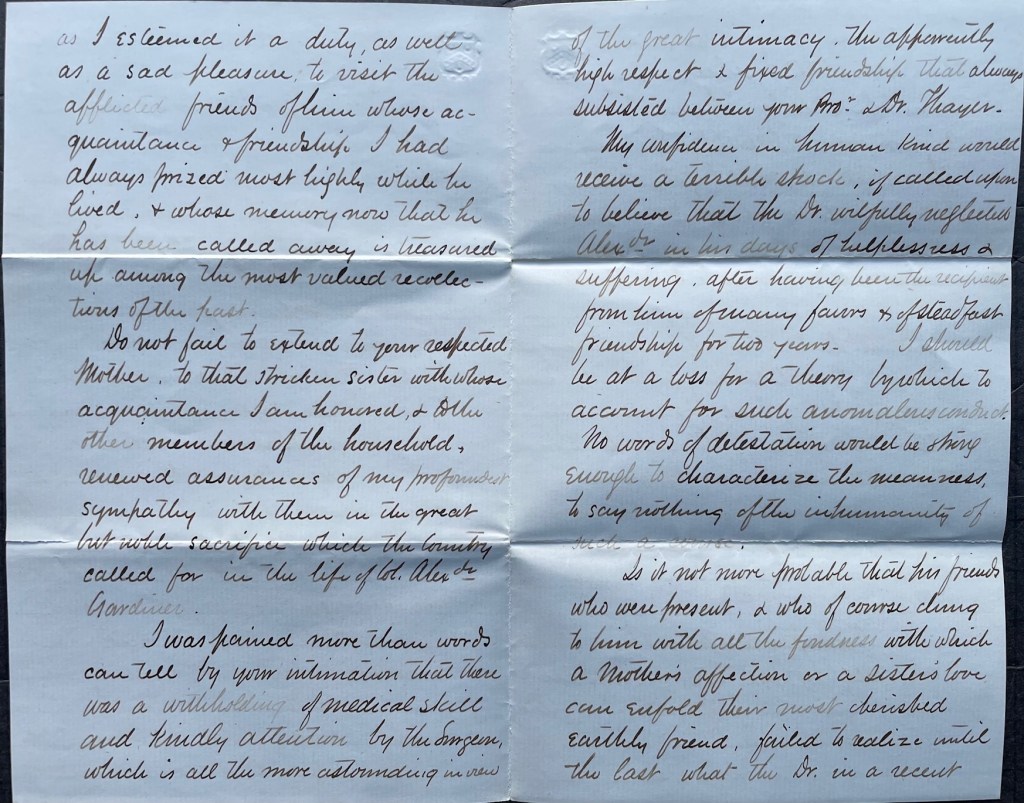 as I esteemed it a duty, as well
as a sad pleasure, to visit the
afflicted friends of him whose ac-
quaintance & friendship I had
always prized most highly while he
lived, & whose memory now that he
has been called away is treasured
up among the most valued recollec-
tions of the past.
Do not fail to extend to your respected
Mother, to that stricken sister with whose
acquaintance I am honored, & to the
other members of the household,
renewed assurances of my profoundest
sympathy with them in the great
but noble sacrifice which the Country
called for in the life of Col. Alexdr
Gardiner.
I was pained more than words
can tell by your intimation that there
was a withholding of medical skill
and kindly attention by the Surgeon,
which is all the more astounding in view
of the great intimacy, the apparently
high respect & fixed friendship that always
subsisted between your Bror & Dr. Thayer.
My confidence in human kind would
receive a terrible shock, if called upon
to believe that the Dr. wilfully neglected
Alexdr in his days of helplessness &
suffering, after having been the recipient
from him of many favors & of steadfast
friendship for two years. I should
be at a loss for a theory by which to
account for such anomalous conduct.
No words of detestation would be strong
enough to characterize the meanness,
to say nothing of the inhumanity of
such a course.
Is it not more probable that his friends
who were present, & who of course clung
to him with all the fondness with which
a Mother's affection or a sister's love
can enfold their most cherished
earthly friend, failed to realize until
the last what the Dr. in a recent